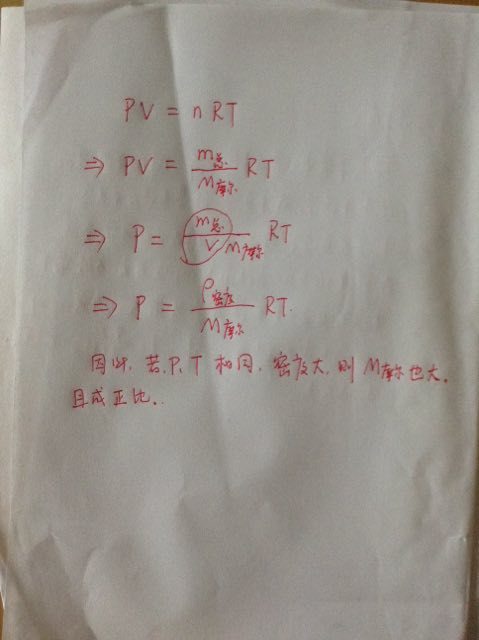 PV = nRT
⇒ PV = m总/M摩尔 RT
⇒ P = m总/V M摩尔 RT
⇒ P = ρ密度/M摩尔 RT.
因此, 若P、T 相同, 密度大, 则 M摩尔也大.
且成正比.